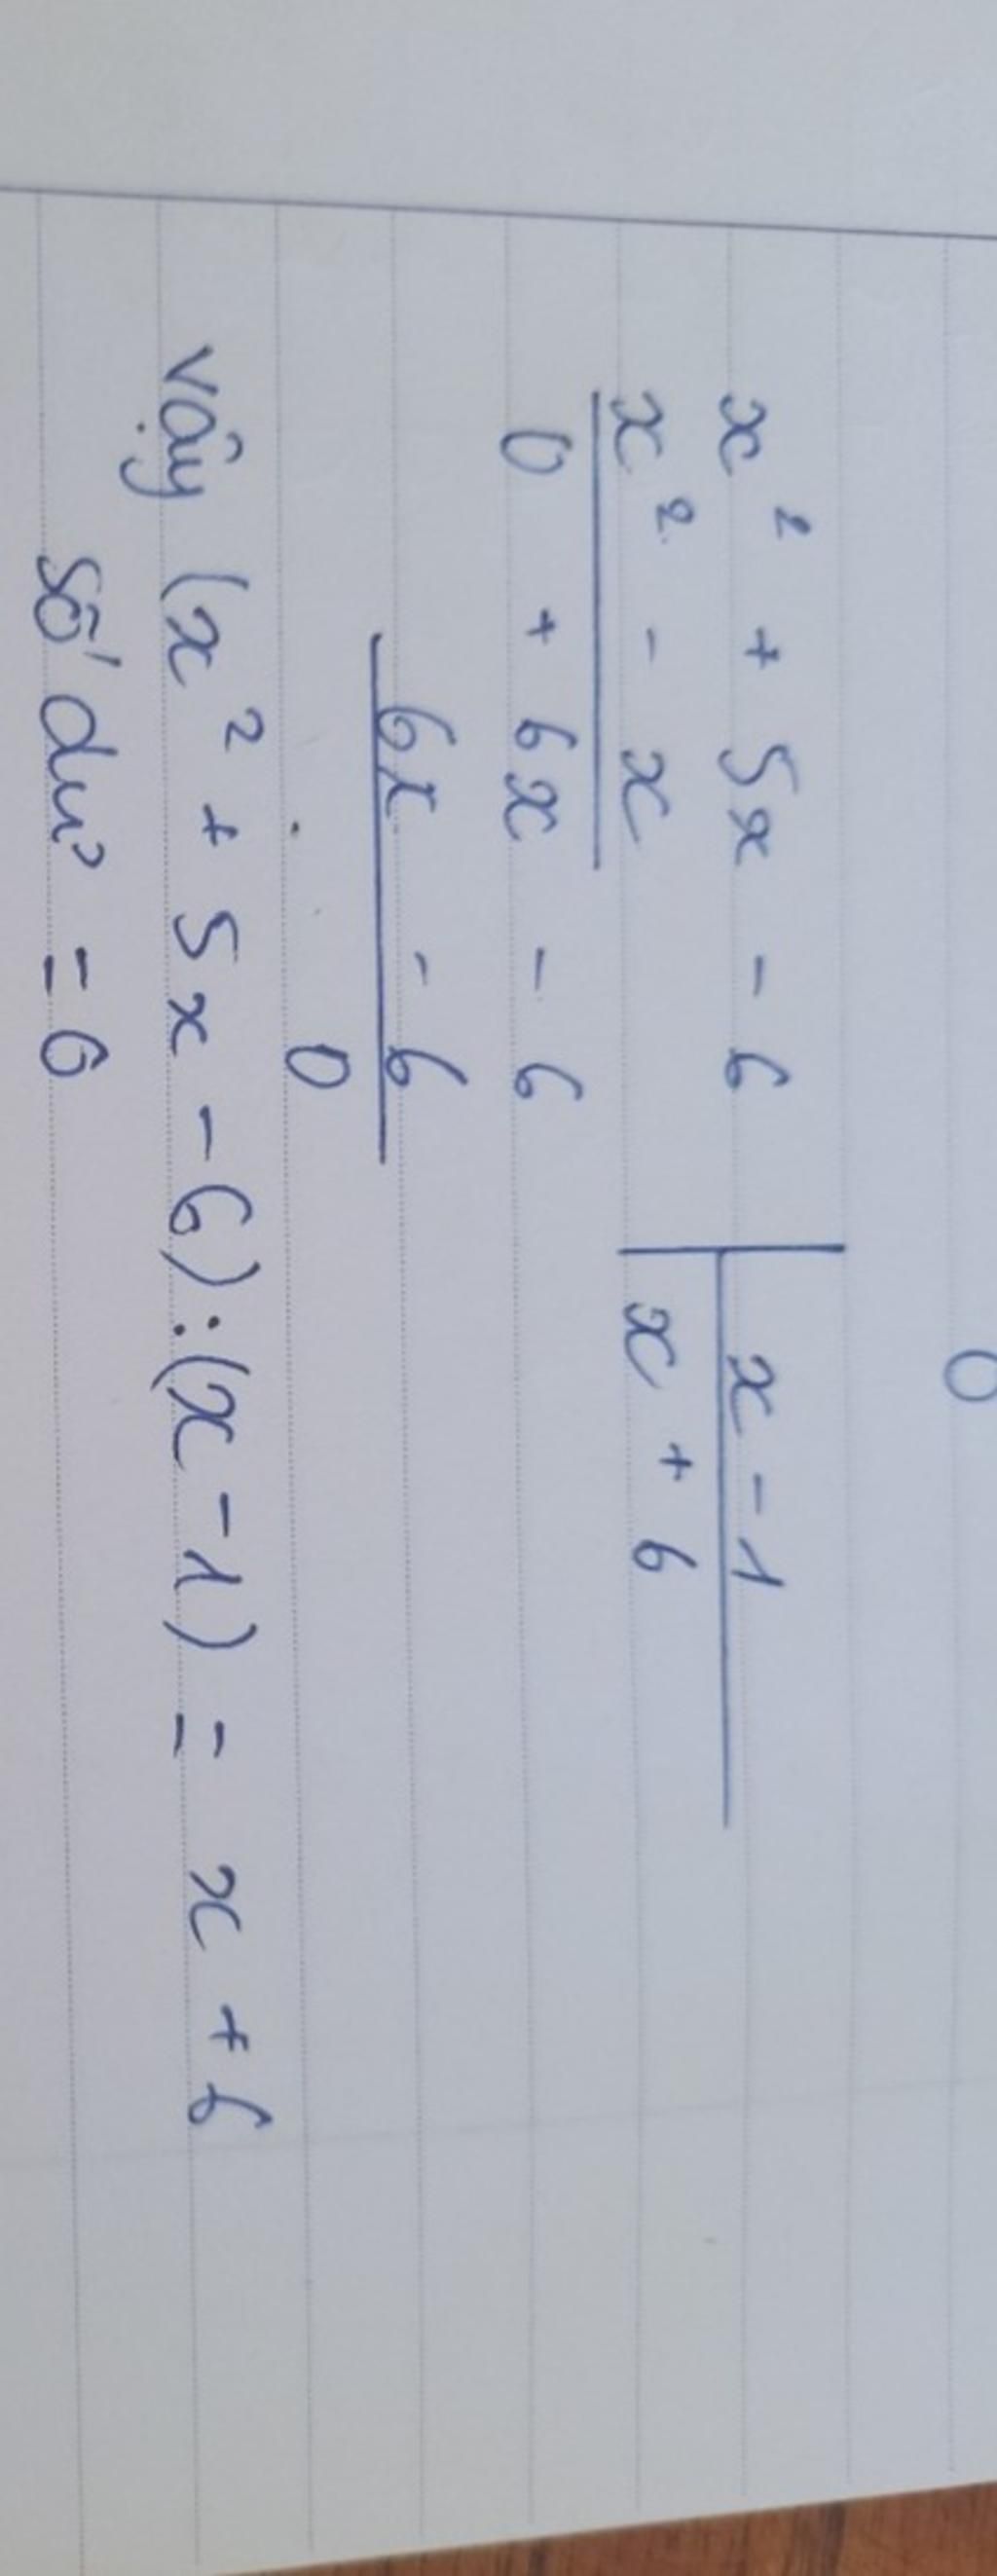 0
x² + 5x - 6 | x - 1
x² - x | x + 6
0 + 6x - 6
6x - 6
0
Vậy (x² + 5x - 6) : (x - 1) = x + 6
Số dư = 0